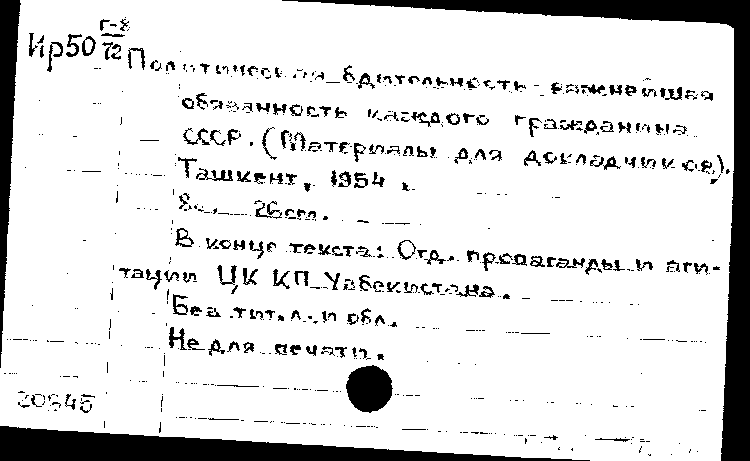 Г-8
Ир50 72 Политическая бдительность - важнейшая
обязанность каждого гражданина
СССР. (Материалы для докладчиков).
Ташкент, 1954.
8с. 26см.
В конце текста: Отд. пропаганды и аги-
тации ЦК КП Узбекистана.
Без тит. л. и обл.
Не для печати.
20845